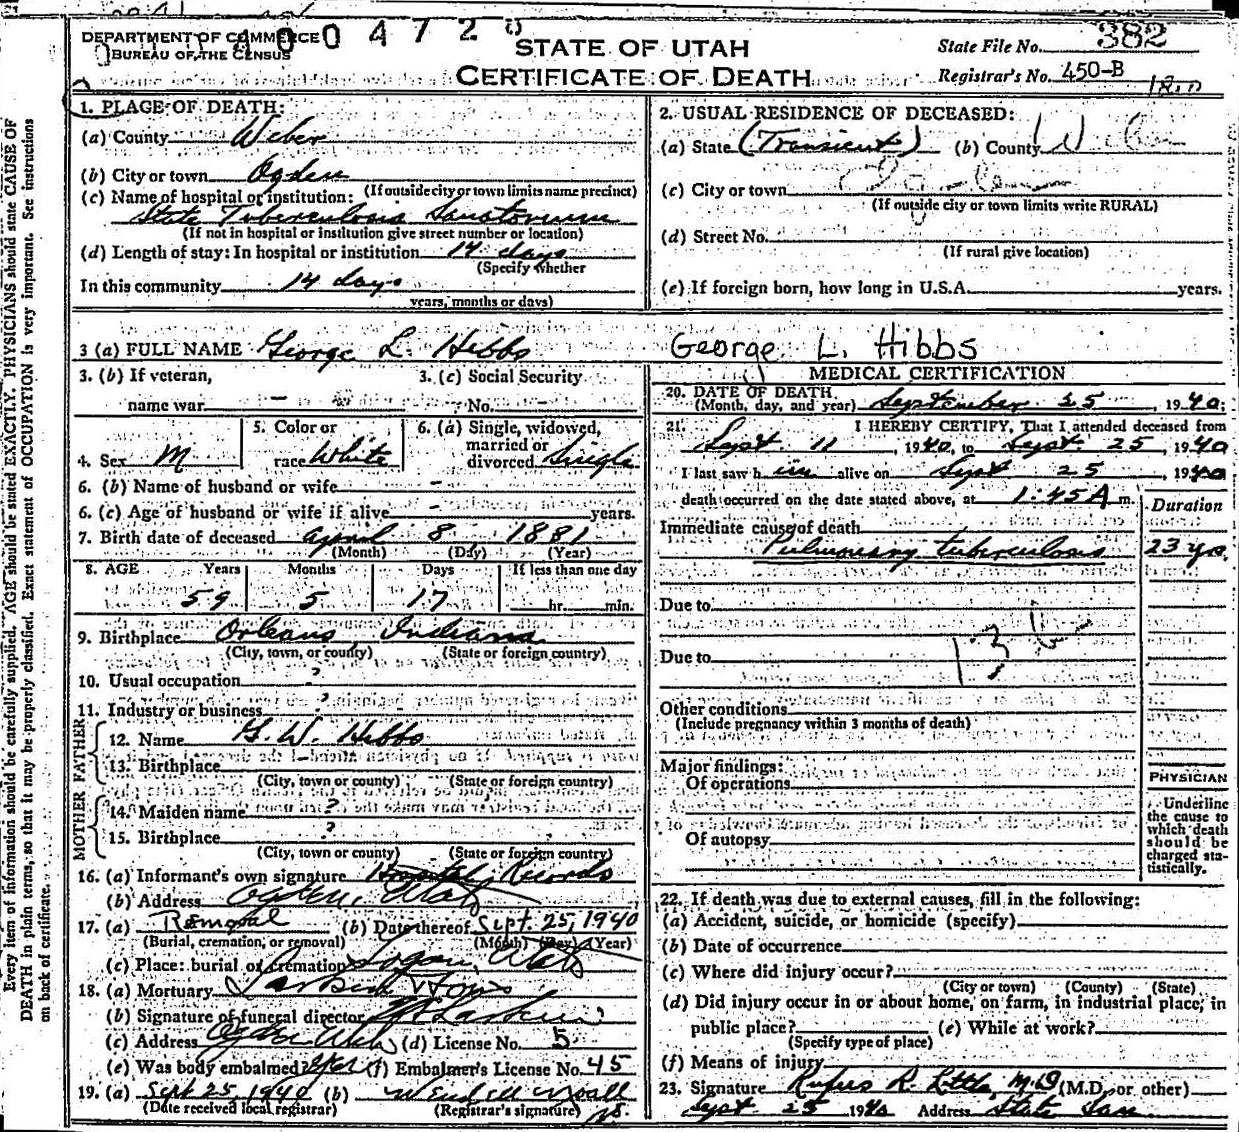 DEPARTMENT OF COMMERCE
BUREAU OF THE CENSUS
0 0 4 7 2
STATE OF UTAH
CERTIFICATE OF DEATH
State File No. 382
Registrar's No. 450-B
Every item of information should be carefully supplied. AGE should be stated EXACTLY. PHYSICIANS should state CAUSE OF
DEATH in plain terms, so that it may be properly classified. Exact statement of OCCUPATION is very important. See instructions
on back of certificate.
1. PLACE OF DEATH:
(a) County Weber
(b) City or town Ogden
(If outside city or town limits name precinct)
(c) Name of hospital or institution:
State Tuberculosis Sanatorium
(If not in hospital or institution give street number or location)
(d) Length of stay: In hospital or institution 14 days
(Specify whether
In this community 14 days
years, months or days)
2. USUAL RESIDENCE OF DECEASED:
(a) State (Transient) (b) County Weber
(c) City or town
(If outside city or town limits write RURAL)
(d) Street No.
(If rural give location)
(e) If foreign born, how long in U.S.A. years.
3 (a) FULL NAME George L. Hibbs George L. Hibbs
3. (b) If veteran,
name war -
3. (c) Social Security
No. -
4. Sex M
5. Color or
race White
6. (a) Single, widowed,
married or
divorced Single
6. (b) Name of husband or wife -
6. (c) Age of husband or wife if alive - years.
7. Birth date of deceased April 8 1881
(Month) (Day) (Year)
8. AGE Years Months Days If less than one day
59 5 17 hr. min.
9. Birthplace Orleans Indiana
(City, town, or county) (State or foreign country)
10. Usual occupation ?
11. Industry or business ?
FATHER
12. Name G. W. Hibbs
13. Birthplace -
(City, town or county) (State or foreign country)
MOTHER
14. Maiden name ?
15. Birthplace ?
(City, town or county) (State or foreign country)
16. (a) Informant's own signature Hospital Records
(b) Address Ogden, Utah
17. (a) Removal (b) Date thereof Sept. 25, 1940
(Burial, cremation, or removal) (Month) (Day) (Year)
(c) Place: burial or cremation Logan, Utah
18. (a) Mortuary Larkin & Sons
(b) Signature of funeral director Larkin
(c) Address Ogden Utah (d) License No. 5
(e) Was body embalmed? Yes (f) Embalmer's License No. 45
19. (a) Sept 25, 1940 (b) Wendell
(Date received local registrar) (Registrar's signature)
MEDICAL CERTIFICATION
20. DATE OF DEATH
(Month, day, and year) September 25, 1940
21. I HEREBY CERTIFY, That I attended deceased from
Sept. 11, 1940, to Sept. 25, 1940
I last saw him alive on Sept 25, 1940
death occurred on the date stated above, at 1:45 A m.
Duration
Immediate cause of death
Pulmonary tuberculosis 23 yrs.
Due to
Due to
Other conditions
(Include pregnancy within 3 months of death)
Major findings:
Of operations
Of autopsy
PHYSICIAN
Underline
the cause to
which death
should be
charged sta-
tistically.
22. If death was due to external causes, fill in the following:
(a) Accident, suicide, or homicide (specify)
(b) Date of occurrence
(c) Where did injury occur?
(City or town) (County) (State)
(d) Did injury occur in or about home, on farm, in industrial place, in
public place? (e) While at work?
(Specify type of place)
(f) Means of injury
23. Signature Rufus R. Little, M.D (M.D. or other)
Sept. 25 1940 Address State San